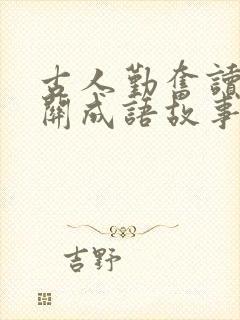 古人勤奮讀
關成語故事
吉野